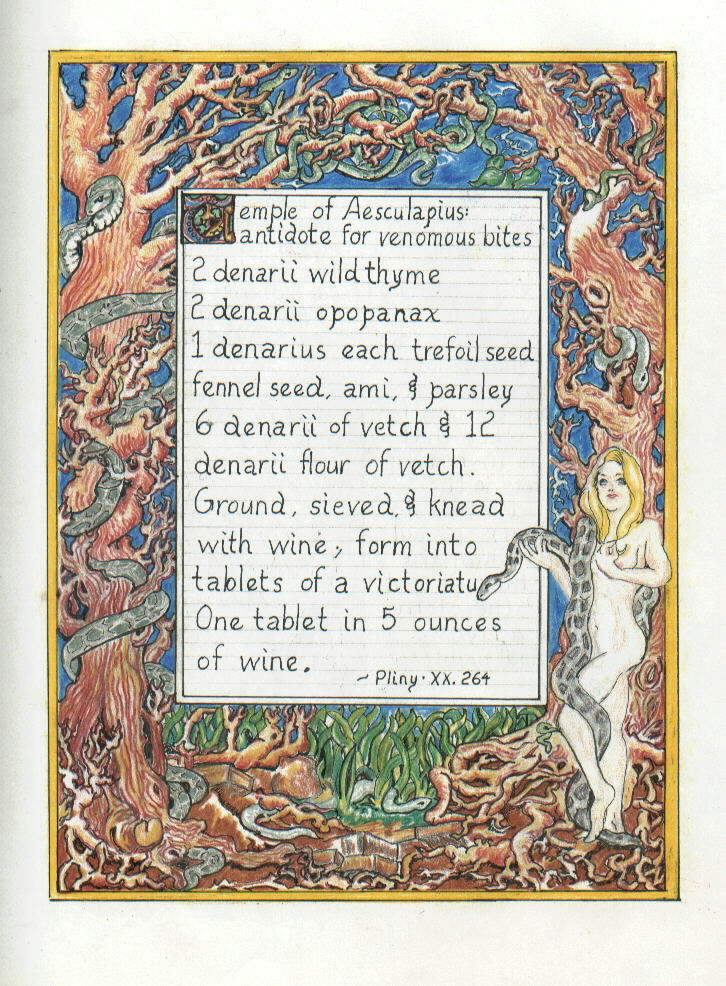 Temple of Aesculapius:
antidote for venomous bites
2 denarii wild thyme
2 denarii opopanax
1 denarius each trefoil seed
fennel seed, ami, & parsley
6 denarii of vetch & 12
denarii flour of vetch.
Ground, sieved, & knead
with wine; form into
tablets of a victoriatu
One tablet in 5 ounces
of wine.
~ Pliny · XX. 264